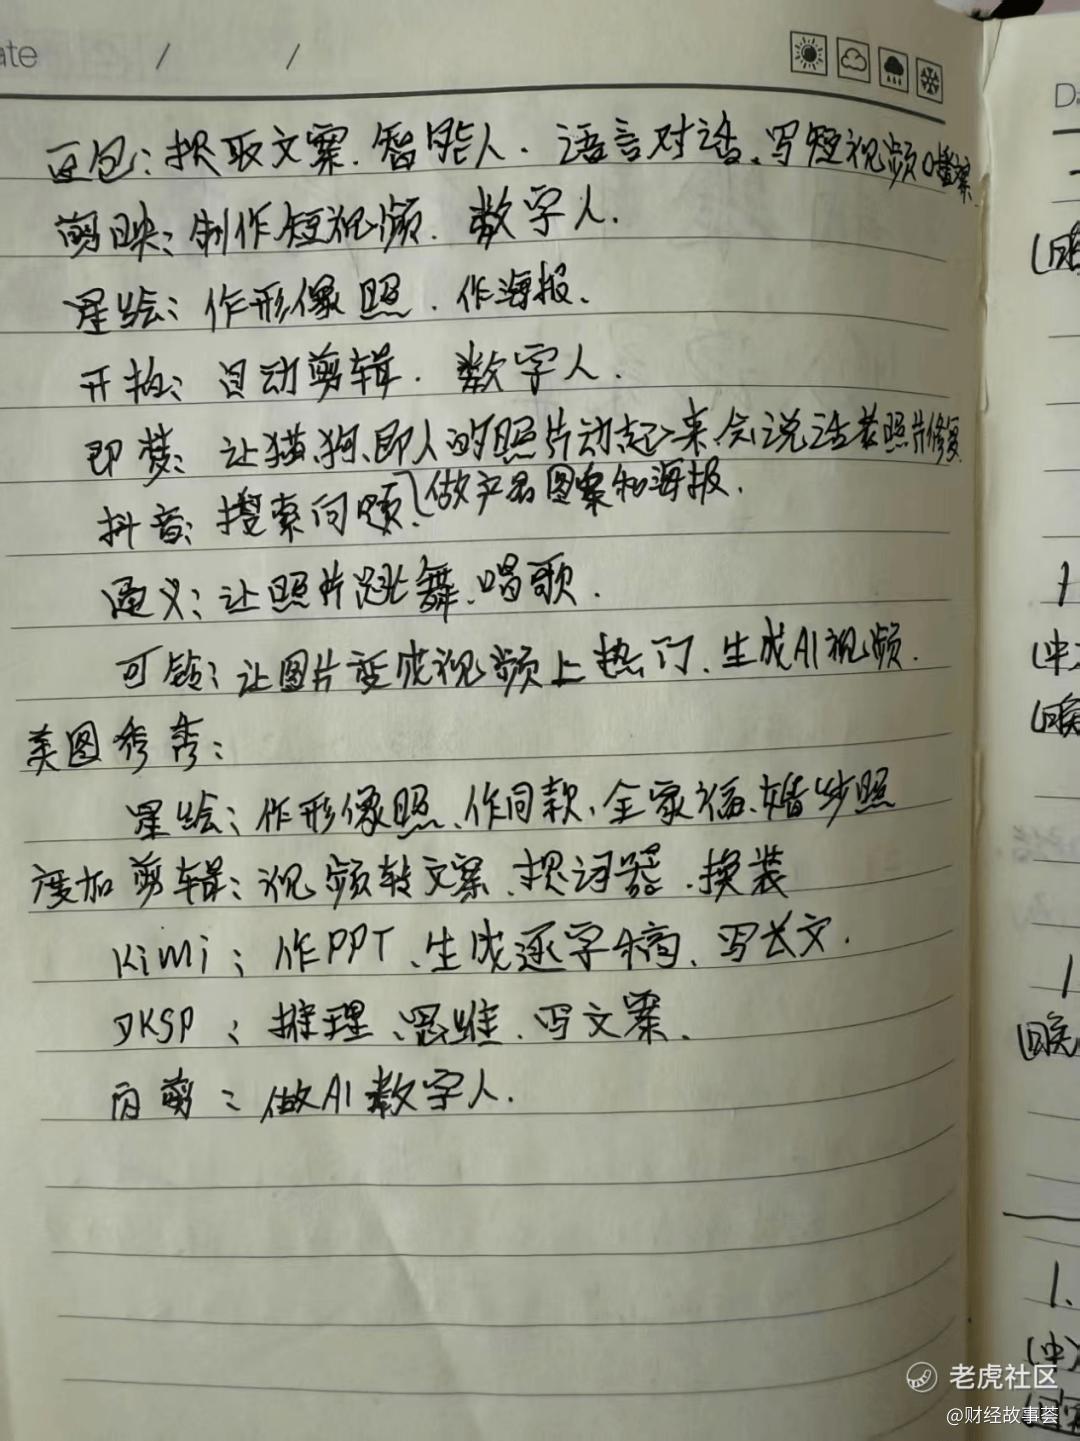 ate / /
豆包：提取文案、智能人、语言对话、写短视频口播案
剪映：制作短视频、数字人.
星绘：作形像照、作海报、
开拍：自动剪辑、数字人.
即梦：让猫、狗、即人的照片动起来、会说话老照片修复
抖音：搜索问题、(做产名图案和海报.
通义：让照片跳舞、唱歌.
可铃：让图片变成视频上热门、生成AI视频.
美图秀秀：
星绘：作形像照、作同款、全家福、婚纱照
度加剪辑：视频转文案、提词器、换装
Kimi：作PPT、生成逐字稿、写长文.
DKSP：推理、思维、写文案.
闪剪：做AI数字人.
D
1
1
1.
老虎社区
@财经故事荟